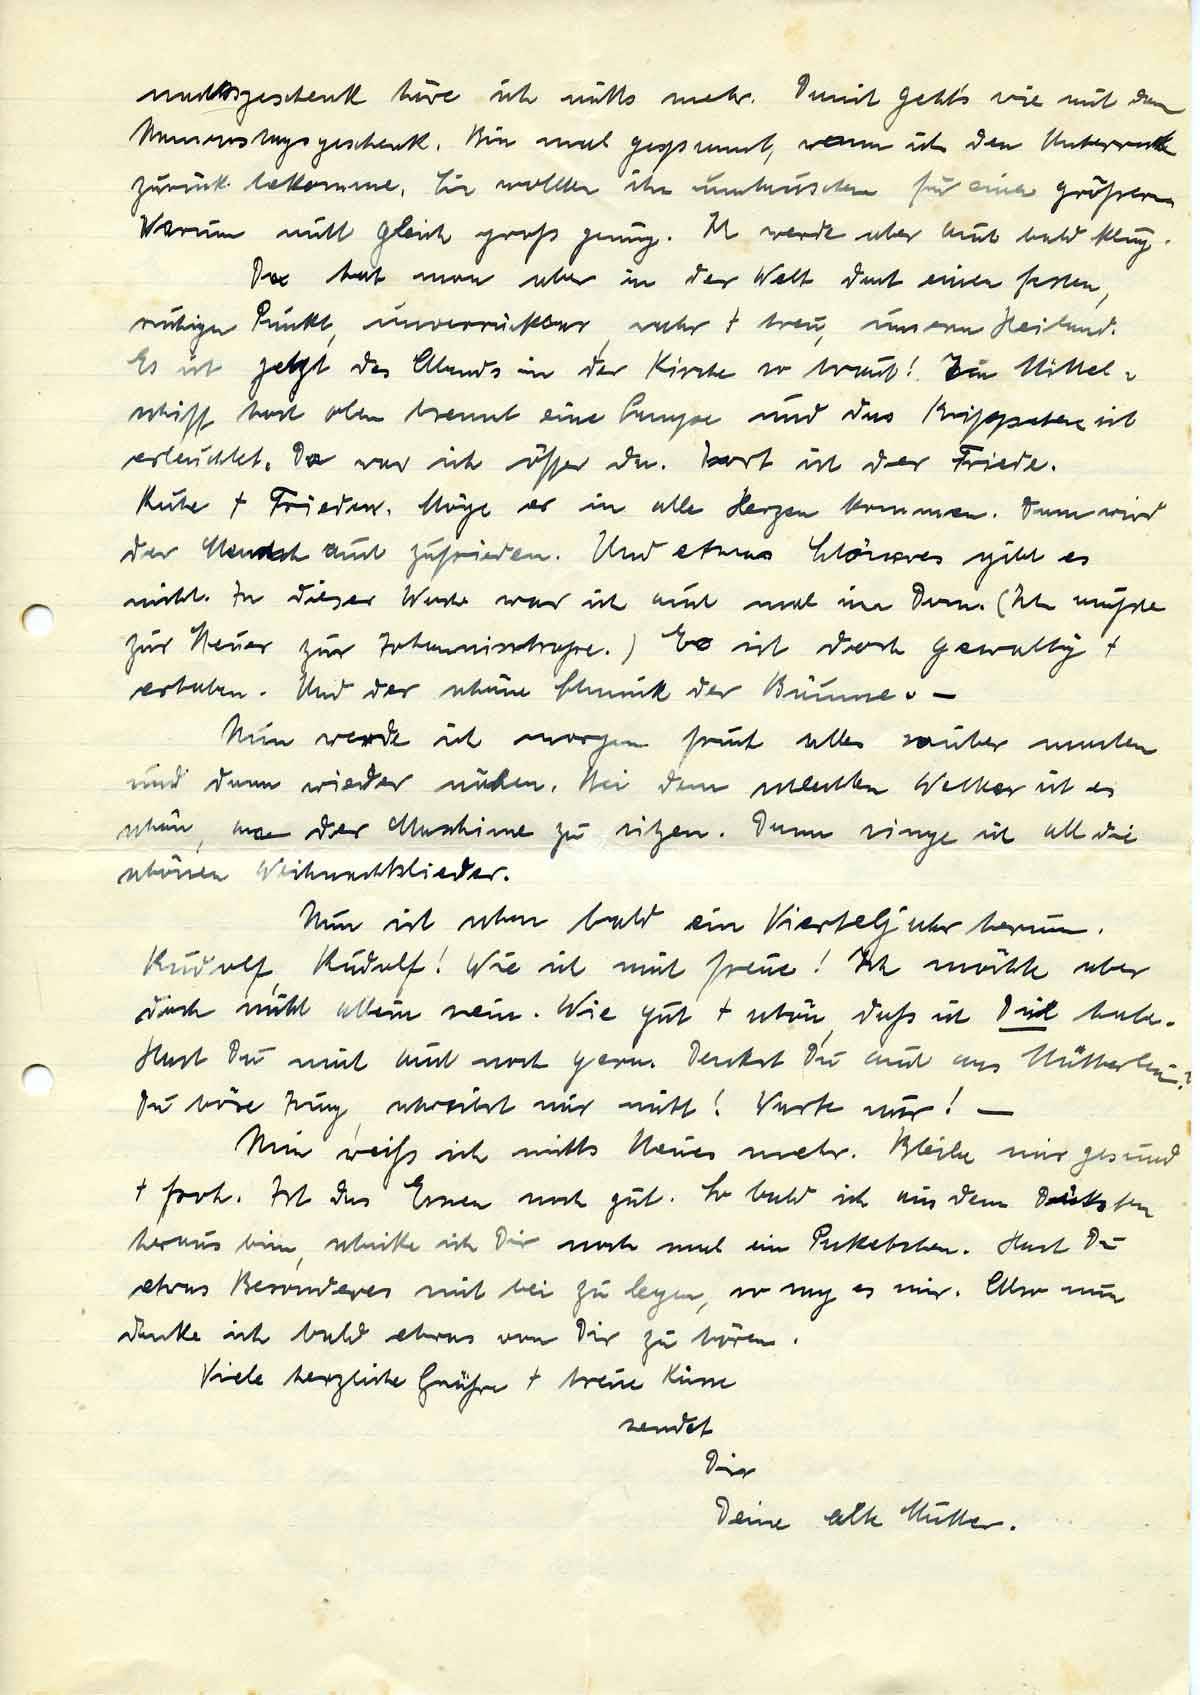 nachtsgeschenk höre ich nichts mehr. Damit geht's wie mit dem
Namenstagsgeschenk. Bin mal gespannt, wann ich den Unterrock
zurück bekomme. Sie wollten ihn umtauschen für einen größeren
Warum nicht gleich groß genug. Ich werde aber auch bald klug.
Da hat man aber in der Welt doch einen festen,
ruhigen Punkt, unverrückbar, wahr + treu, unsern Heiland.
Es ist jetzt des Abends in der Kirche so traut! Im Mittel-
schiff hoch oben brennt eine Lampe und das Krippchen ist
erleuchtet. Da war ich öffer da. Dort ist der Friede.
Ruhe + Frieden. Möge er in alle Herzen kommen. Dann wird
der Mensch auch zufrieden. Und etwas Schöneres gibt es
nicht. In dieser Woche war ich auch mal im Dom. (Ich mußte
zur Steuer zur Johannisstraße.) Es ist doch gewaltig +
erhaben. Und der schöne Schmuck der Bäume. –
Nun werde ich morgen früh alles sauber machen
und dann wieder nähen. Bei dem schlechten Wetter ist es
schön, an der Maschine zu sitzen. Dann singe ich all die
schönen Weihnachtslieder.
Nun ist schon bald ein Vierteljahr herum.
Rudolf, Rudolf! Wie ich mich freue! Ich möchte aber
doch nicht allein sein. Wie gut + schön, daß ich Dich habe.
Hast Du mich auch noch gern. Denkst Du auch ans Mütterlein?
Du böse Jung, schreibst mir nicht! Warte nur! –
Nun weiß ich nichts Neues mehr. Bleibe mir gesund
+ froh. Ist das Essen noch gut. So bald ich aus dem Dicksten
heraus bin, schicke ich Dir noch mal ein Paketchen. Hast Du
etwas Besonderes mit bei zu legen, so sag es mir. Also nun
denke ich bald etwas von Dir zu hören.
Viele herzliche Grüße + treue Küsse
sendet
Dir
Deine alte Mutter.